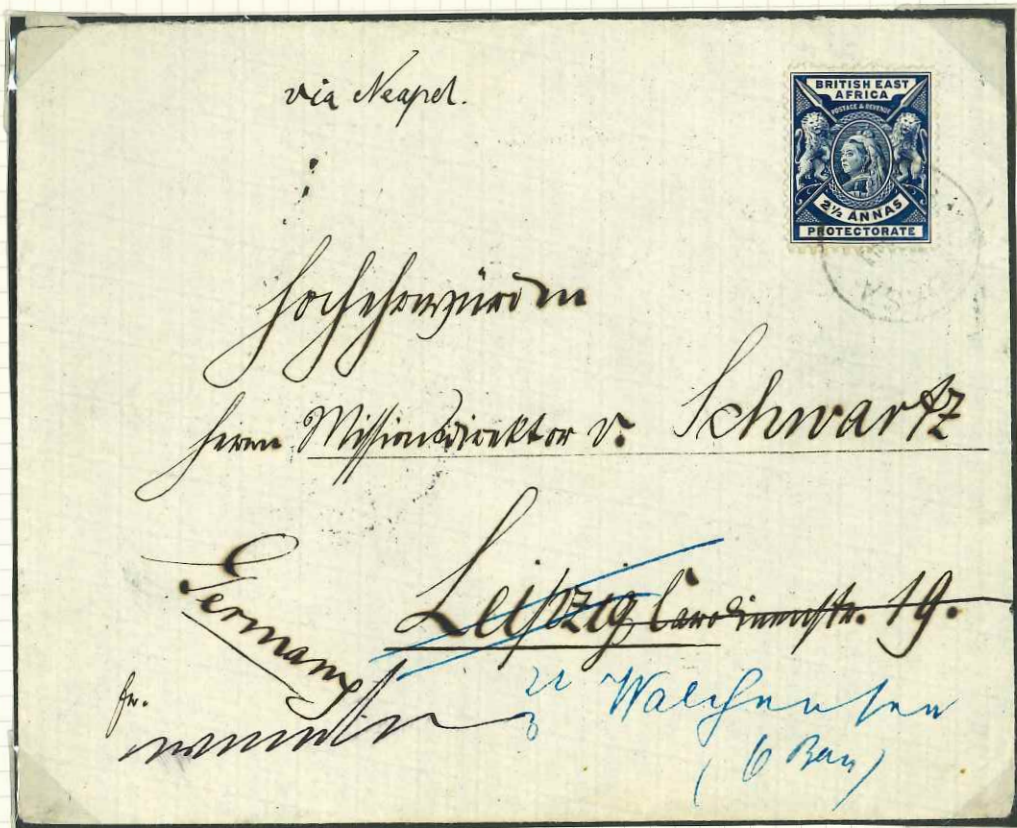 via Neapel.
BRITISH EAST
AFRICA
POSTAGE & REVENUE
2½ ANNAS
PROTECTORATE
Hochehrwürden
Herrn Missionsdirektor v. Schwartz
Leipzig Carolinenstr. 19.
Germany
fr.
Walchensee
(Ob Bay)